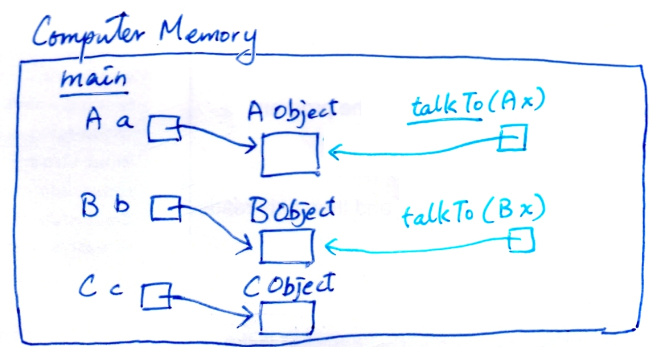 Computer Memory
main
A a
A Object
talkTo(A x)
B b
B Object
talkTo(B x)
C c
C Object